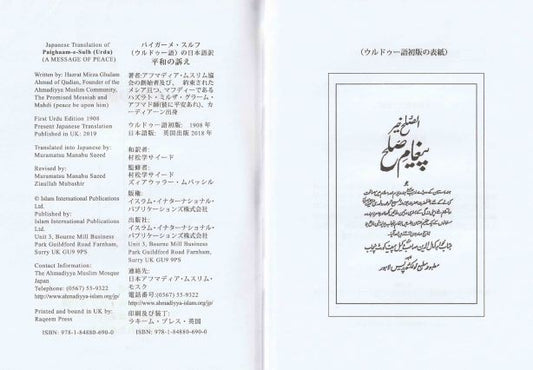 Japanese Translation of
Paighaam-e-Sulh (Urdu)
(A MESSAGE OF PEACE)
Written by: Hazrat Mirza Ghulam
Ahmad of Qadian, Founder of the
Ahmadiyya Muslim Community,
The Promised Messiah and
Mahdi (peace be upon him)
First Urdu Edition 1908
Present Japanese Translation
Published in UK: 2019
Translated into Japanese by:
Muramatsu Manabu Saeed
Revised by:
Muramatsu Manabu Saeed
Ziaullah Mubashir
© Islam International Publications
Ltd.
Published by:
Islam International Publications
Ltd.
Unit 3, Bourne Mill Business
Park Guildford Road Farnham,
Surry UK GU9 9PS
Contact Information:
The Ahmadiyya Muslim Mosque
Japan
Telephone: (0567) 55-9322
http://www.ahmadiyya-islam.org/jp/
Printed and bound in UK by:
Raqeem Press
ISBN: 978-1-84880-690-0
パイガーメ・スルフ
(ウルドゥー語) の日本語訳
平和の訴え
著者:アフマディア・ムスリム協
会の創始者及び、 約束された
メシア且つ、マフディーである
ハズラト・ミルザ・グラーム・
アフマド師(彼に平安あれ)、カ
ーディアーン出身
ウルドゥー語初版: 1908 年
日本語版: 英国出版 2018 年
和訳者:
村松学サイード
監修者:
村松学サイード
ズィアウッラー・ムバッシル
版権:
イスラム・イナターナショナル・
パブリケーションズ株式会社
出版社:
イスラム・イナターナショナル・
パブリケーションズ株式会社
Unit 3, Bourne Mill Business
Park Guildford Road Farnham,
Surry UK GU9 9PS
連絡先:
日本アフマディア・ムスリム・
モスク
電話番号:(0567) 55-9322
http://www.ahmadiyya-islam.org/jp/
印刷及び装丁:
ラキーム・プレス・英国
ISBN: 978-1-84880-690-0
(ウルドゥー語初版の表紙)
الصلح خیر
پیغام صلح